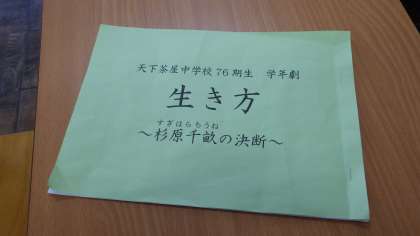 天下茶屋中学校76期生 学年劇
生き方
すぎはらちうね
～杉原千畝の決断～